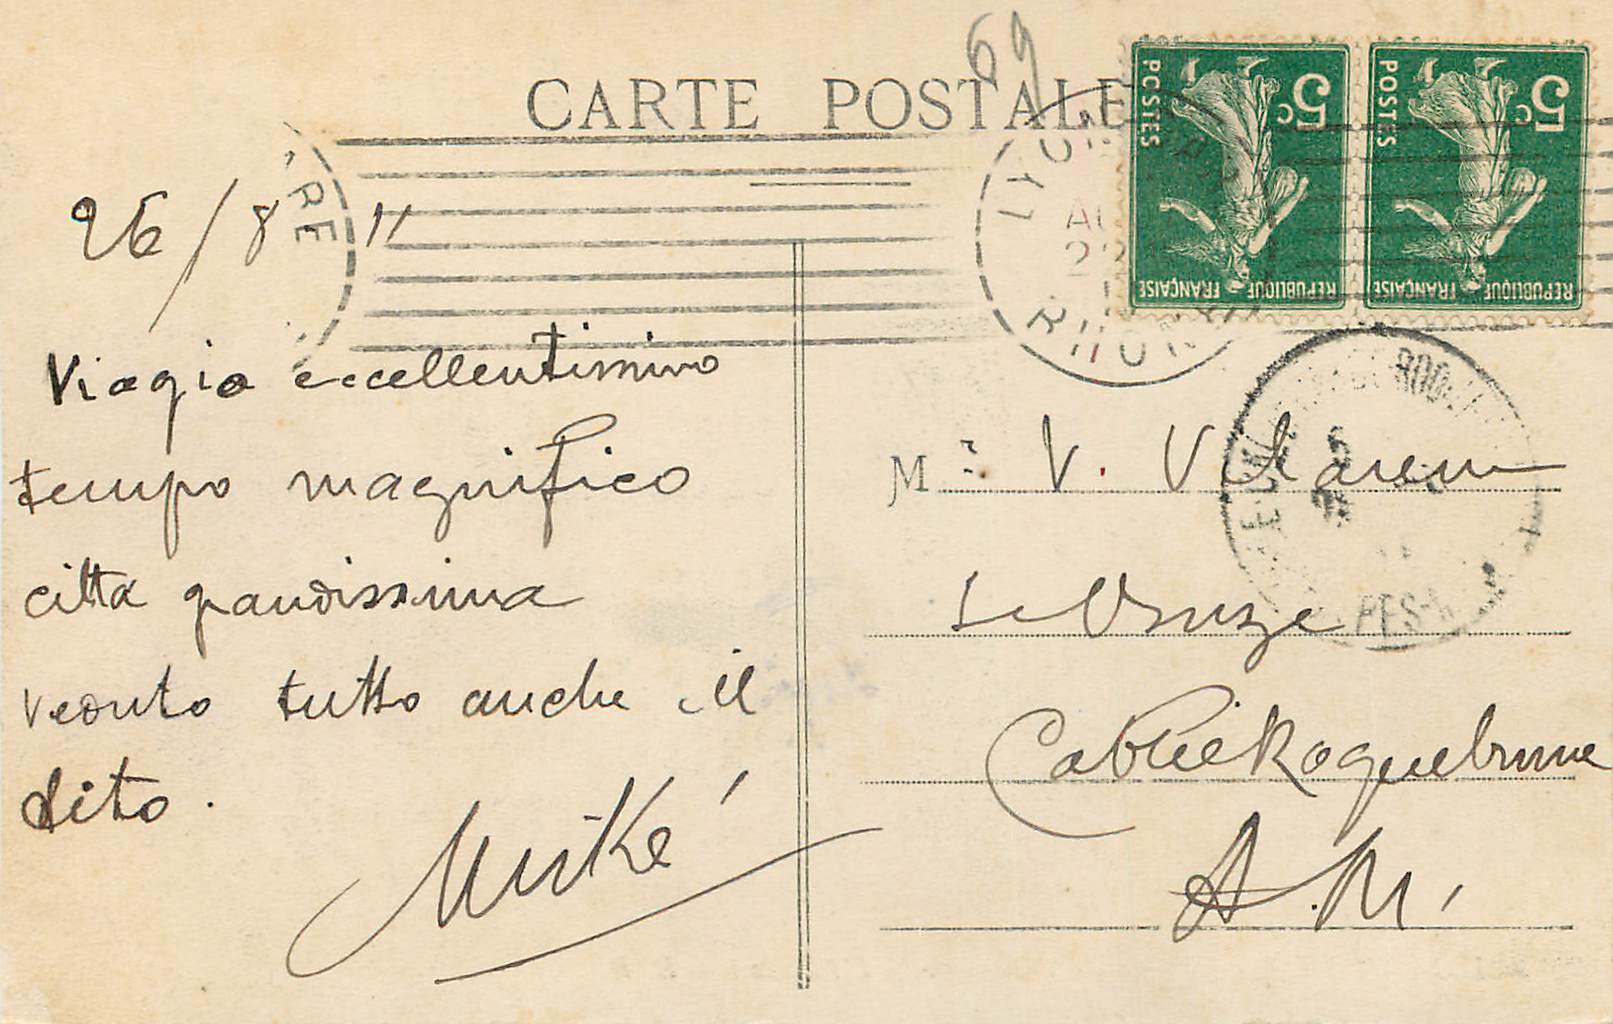 69
CARTE POSTALE
5c
POSTES
REPUBLIQUE FRANÇAISE
5c
POSTES
REPUBLIQUE FRANÇAISE
LYON
RHONE
26/8 11
Viagio eccellentissimo
tempo magnifico
citta grandissima
veduto tutto anche il
dito.
Miké
M V.
Le
Cabbé Roquebrune
A.M.